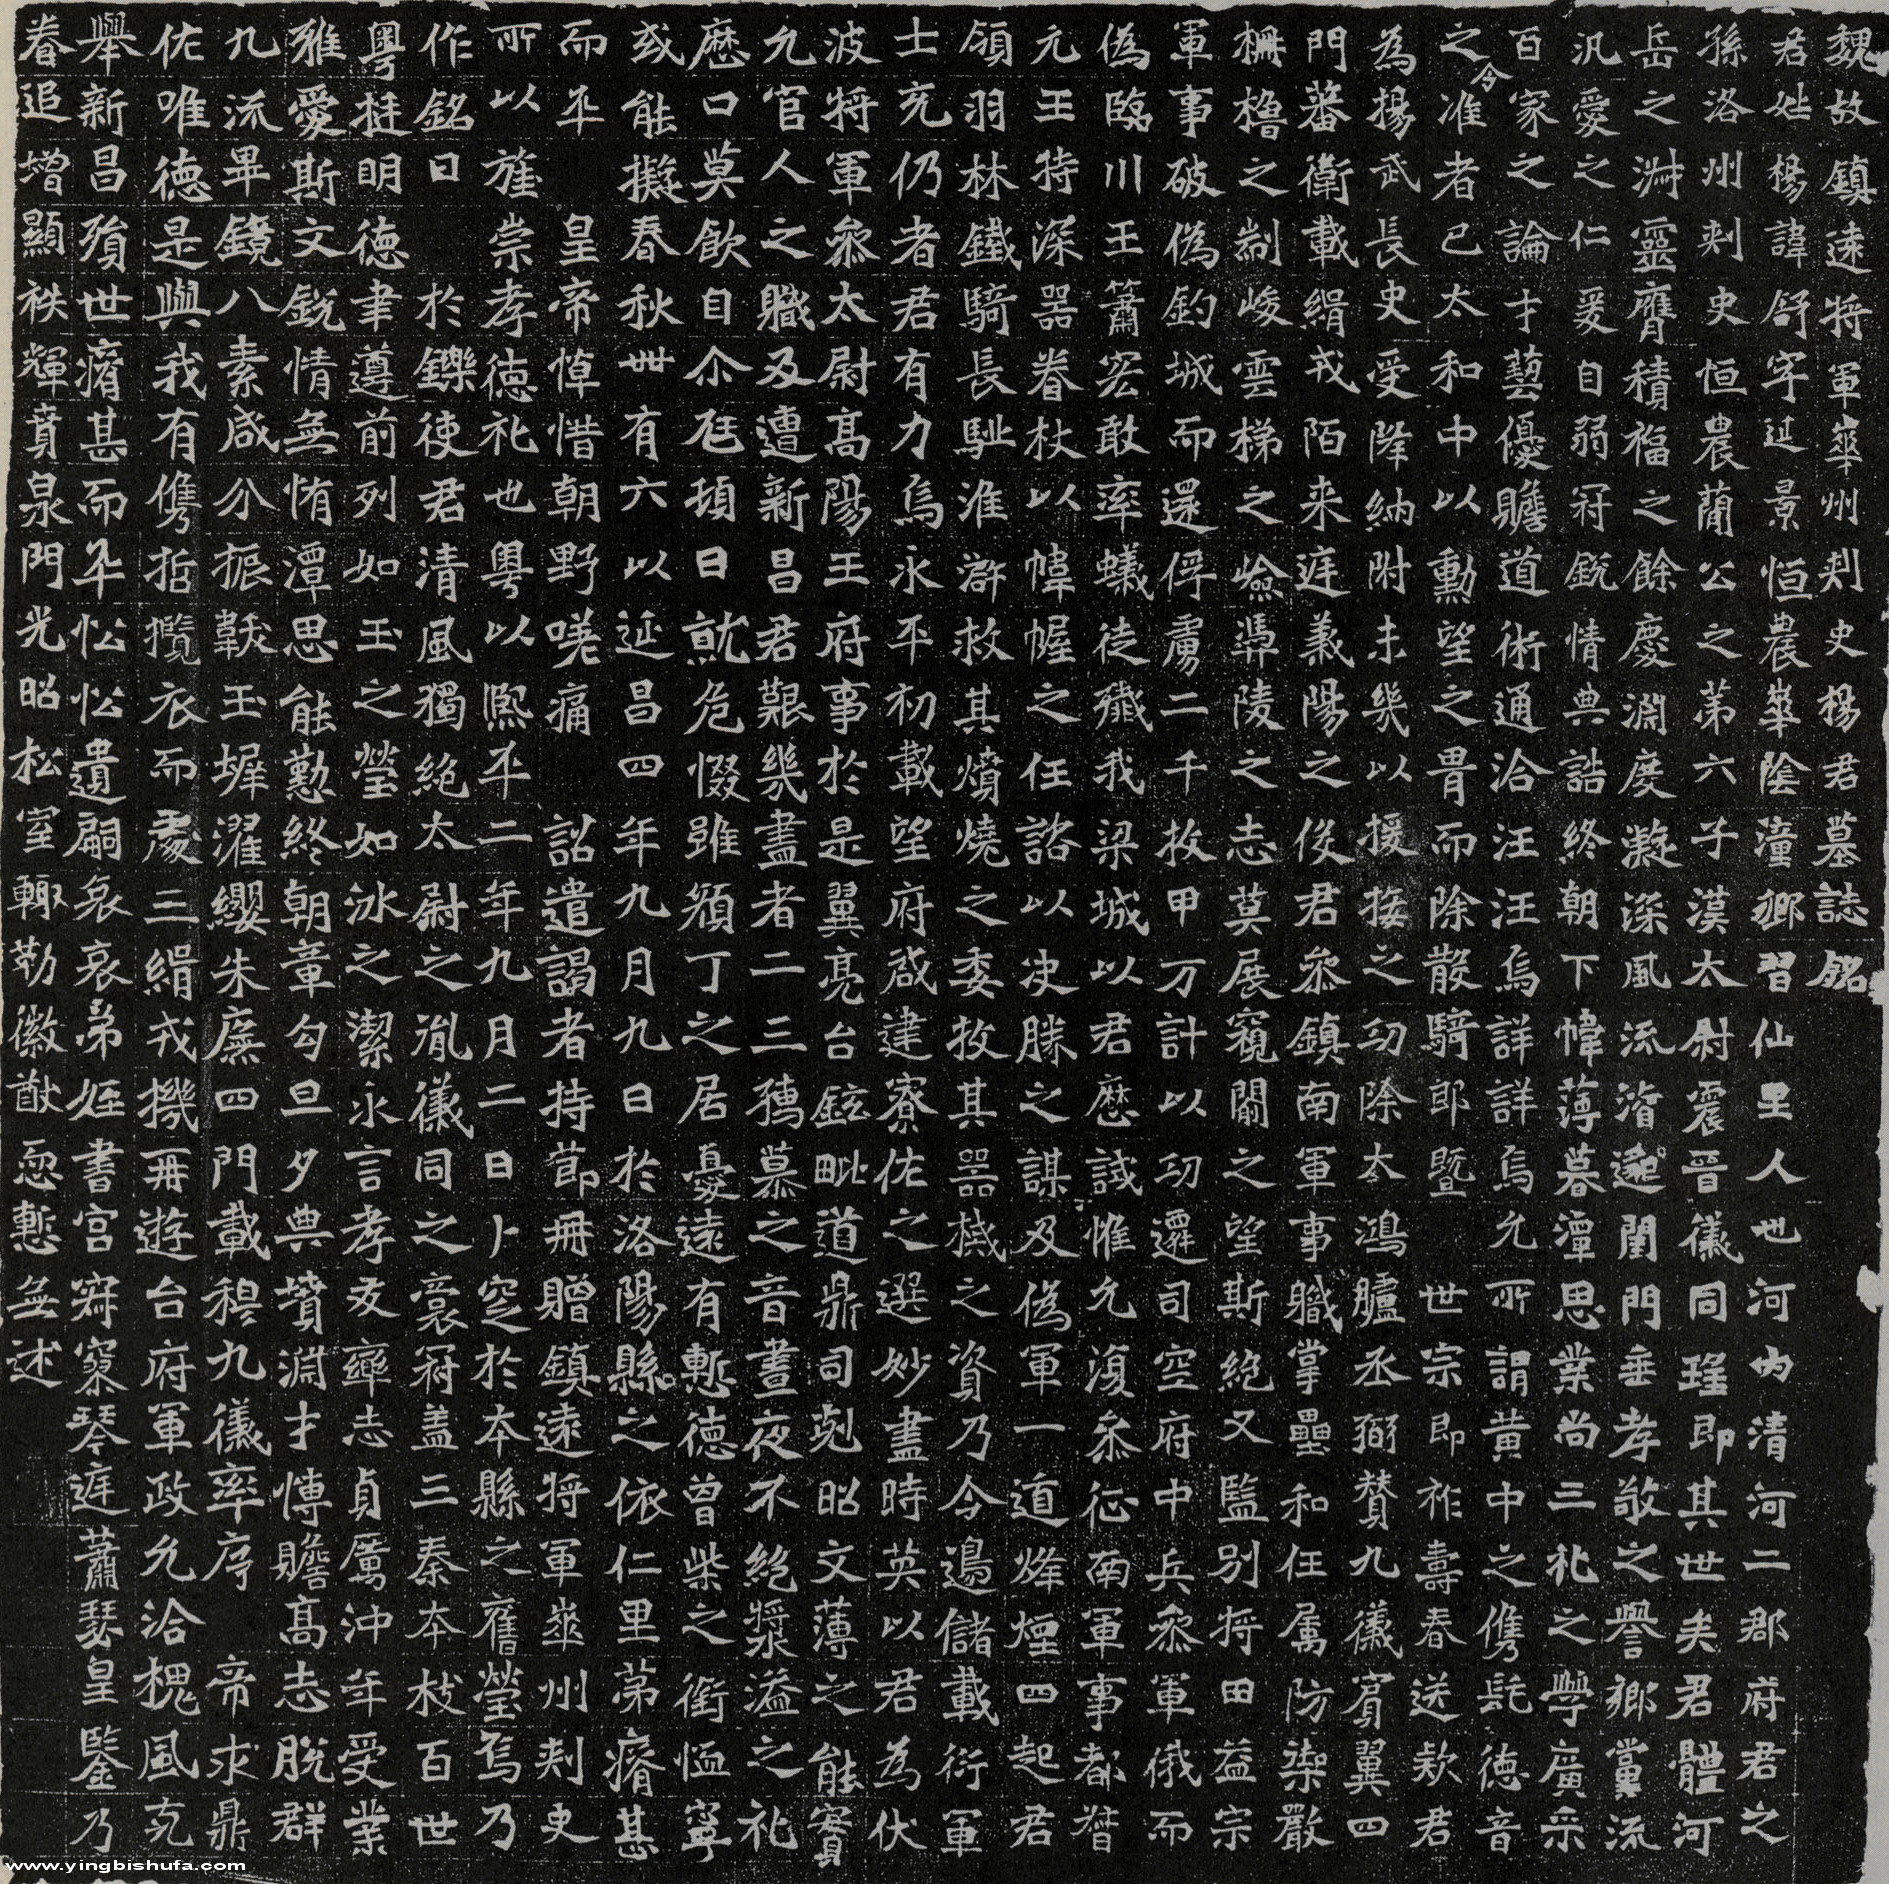 魏故鎮遠將軍華州刺史楊君墓誌銘
君姓楊諱舒字延景恒農華陰潼鄉習仙里人也河內清河二郡府君之
孫洛州刺史恒農簡公之第六子漢太尉震晉儀同瑤即其世矣君體河
岳之淵靈膺積福之餘慶淵度凝深風流湝邈閨門垂孝敬之譽鄉黨流
汎愛之仁爰自弱冠銳情典誥終朝下幃薄暮潭思業尚三禮之學廣采
百家之論才藝優贍道術通洽汪汪焉詳詳焉允所謂黃中之儁髦德音
之令准者已太和中以勳望之胄而除散騎郎暨世宗即祚壽春送款君
為揚武長史受降納附未幾以援接之功除太鴻臚丞弼贊九儀賓翼四
門蕃衛載緝戎陌來庭義陽之役君參鎮南軍事職掌壘和任属防禦嚴
柵櫓之制峻雲梯之嶮馮陵之志莫展窺闚之望斯絕又監別將田益宗
軍事破偽釣城而還俘虜二千收甲万計以功遷司空府中兵參軍俄而
偽臨川王簫宏敢率蟻徒殲我梁城以君歷試惟允復參征南軍事都督
元王特深器眷杖以幃幄之任諮以決勝之謀及偽軍一道烽煙四起君
領羽林鐵騎長駈淮澨救其燌燒之委收其器械之資乃令邊儲載衍軍
士充仍者君有力焉永平初載望府啟建寮佐之選妙盡時英以君為伏
波將軍參太尉高陽王府事於是翼亮台鉉毗道鼎司剋昭文薄之能實
允官人之職及遭新昌君艱幾盡者二三孺慕之音晝夜不絕漿溢之禮
歷口莫飲自尒尫頓日就危惙雖顏丁之居憂遠有慙德曾柴之銜恤寧
或能擬春秋卌有六以延昌四年九月九日於洛陽縣之依仁里第瘠甚
而卒皇帝悼惜朝野嗟痛詔遣謁者持節冊贈鎮遠將軍華州刺史
所以旌崇孝德禮也粵以熙平二年九月二日卜窆於本縣之舊塋焉乃
作銘曰於鑠使君清風獨絕太尉之胤儀同之裔冠盖三秦本枝百世
粵挺明德聿遵前列如玉之瑩如冰之潔永言孝友率志貞厲沖年受業
雅愛斯文銳情無恡潭思能懃終朝章句旦夕典墳淵才愽贍高志脫群
九流畢鏡八素咸分振韍玉墀濯纓朱廡四門載穆九儀率序帝求鼎
佐唯德是與我有儁哲攬衣而處三緝戎機再遊台府軍政允洽槐風克
舉新昌殞世瘠甚而卒忪忪遺嗣哀哀弟姪書宮寂寥琴庭蕭瑟皇鑒乃
眷追增顯袟輝賁泉門光昭松室輙勒徽猷恧慙無述
www.yingbishufa.com